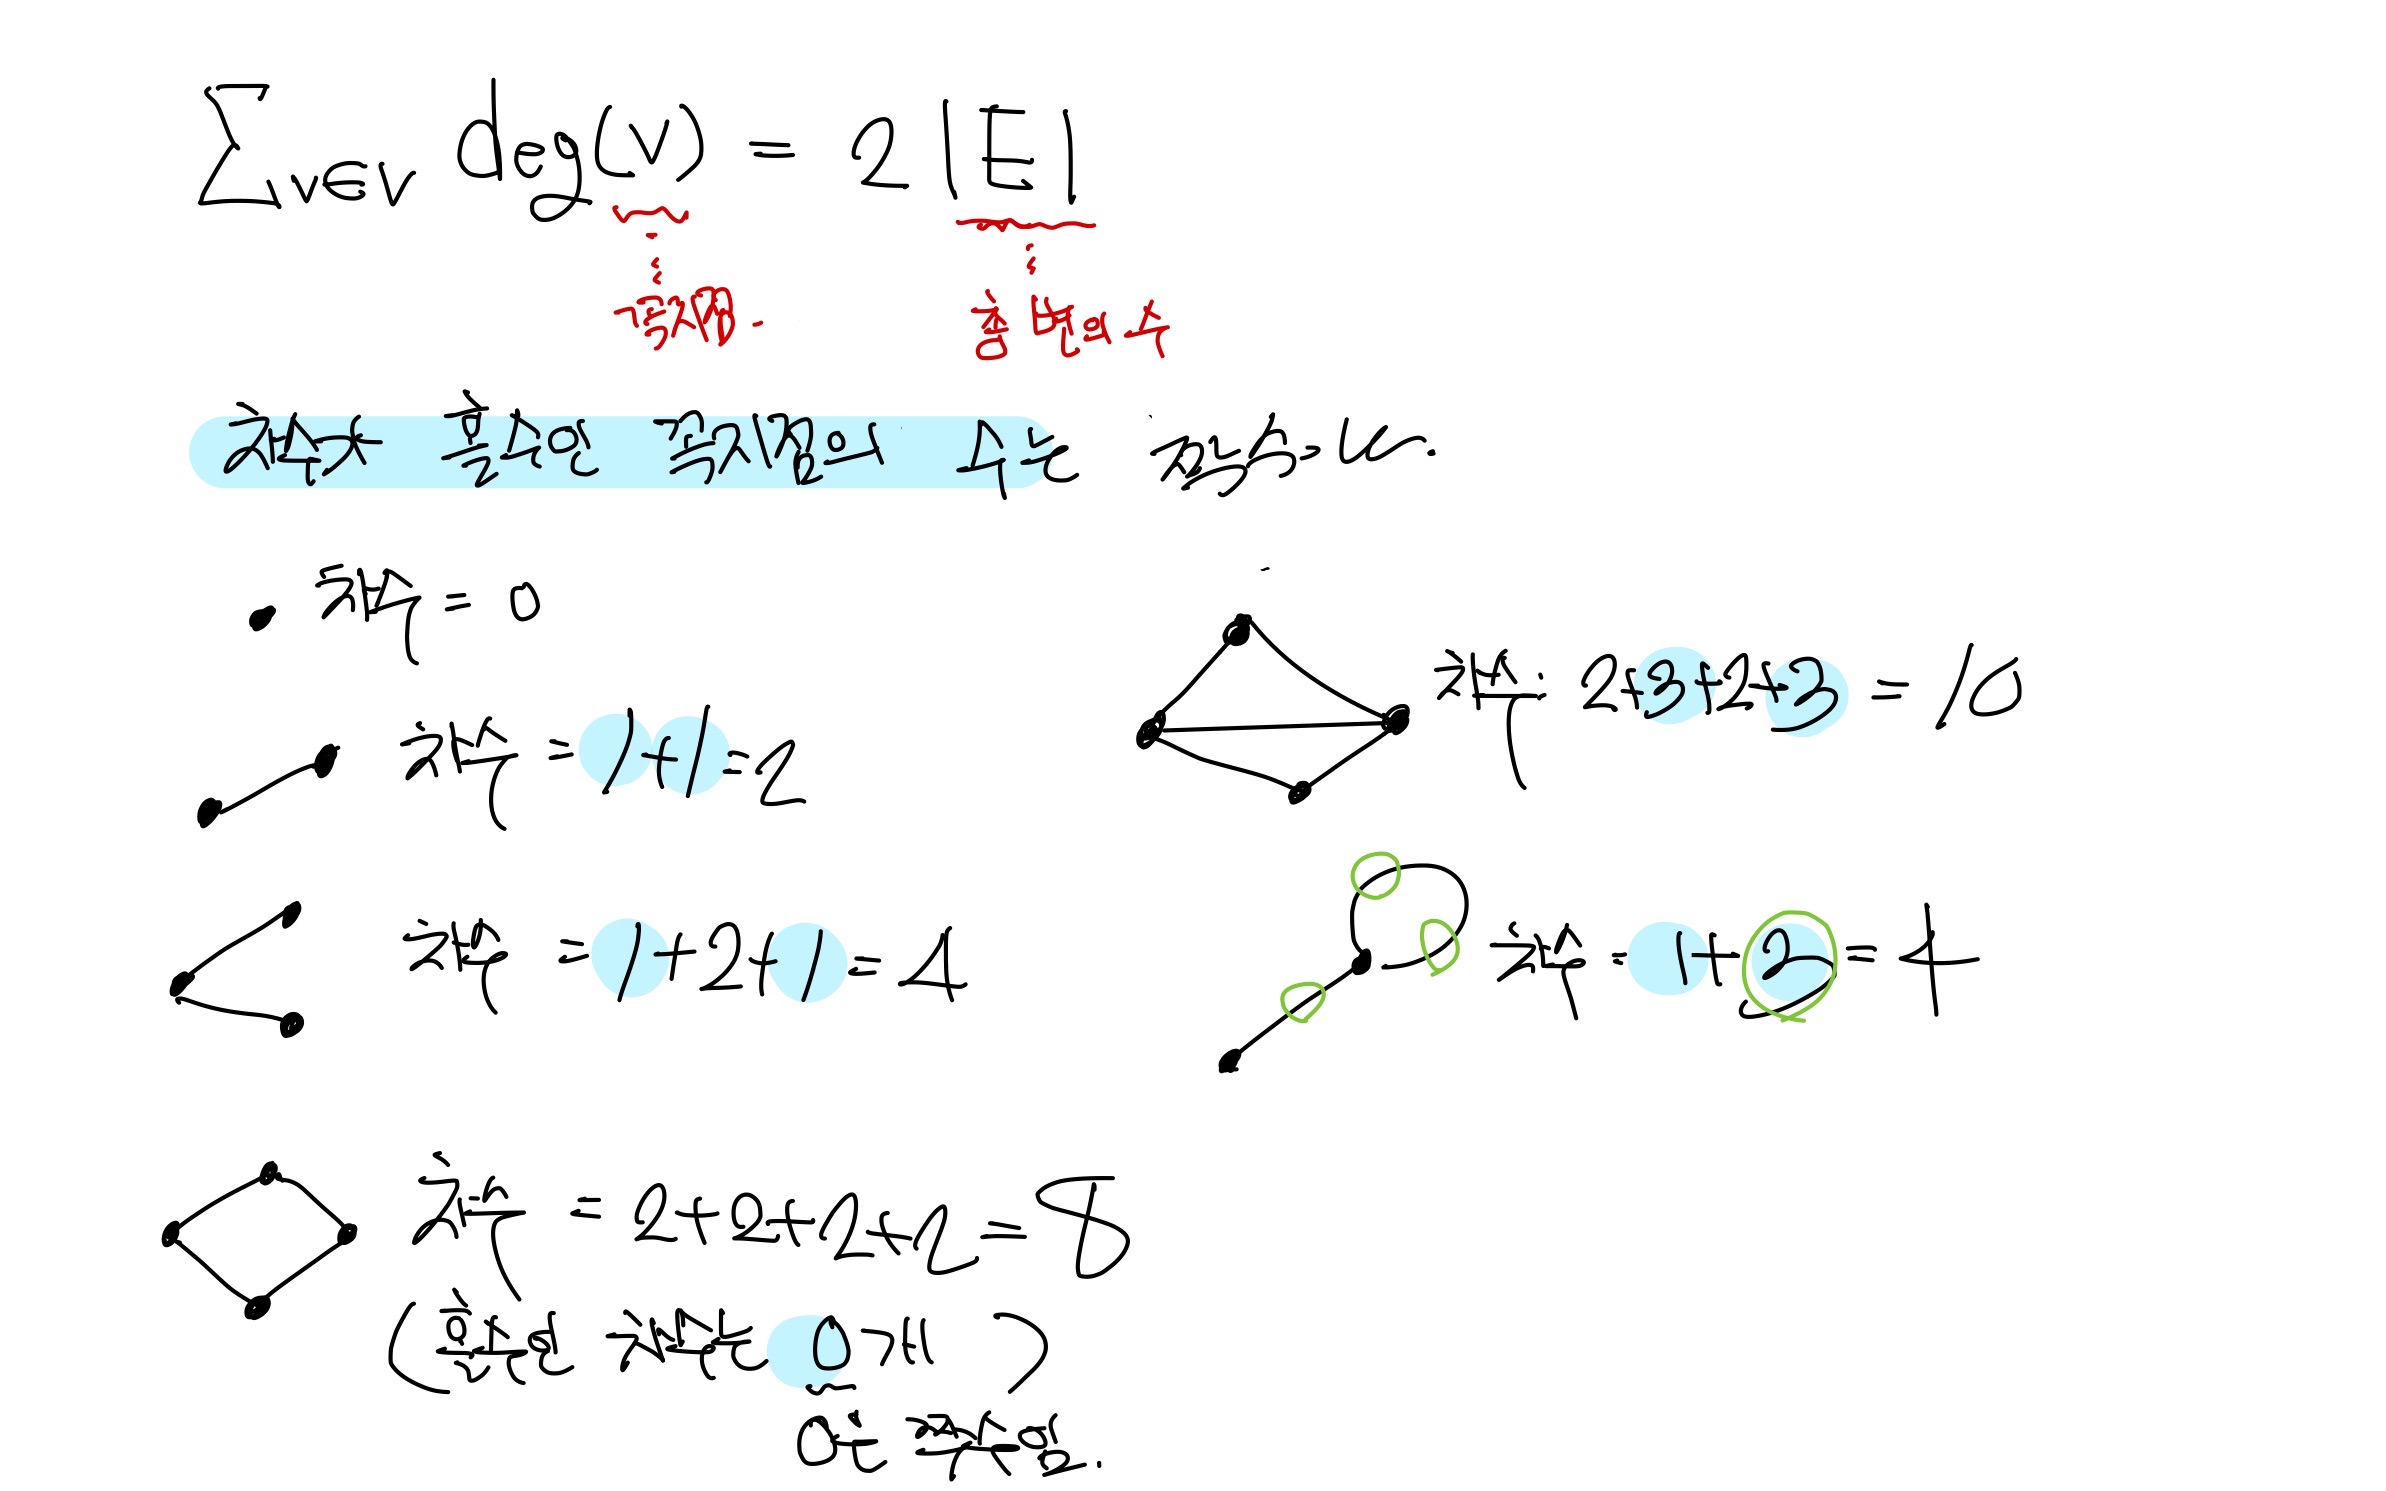 ∑v∈V deg(v) = 2|E|
꼭지점. 총 변의 수
차수가 홀수인 꼭지점의 수는 짝수이다.
차수 = 0
차수 = 1+1=2
차수: 2+3+2+3 = 10
차수 = 1+2+1=4
차수 = 1+3=4
차수 = 2+2+2+2=8
(홀수인 차수는 0개)
0은 짝수임.